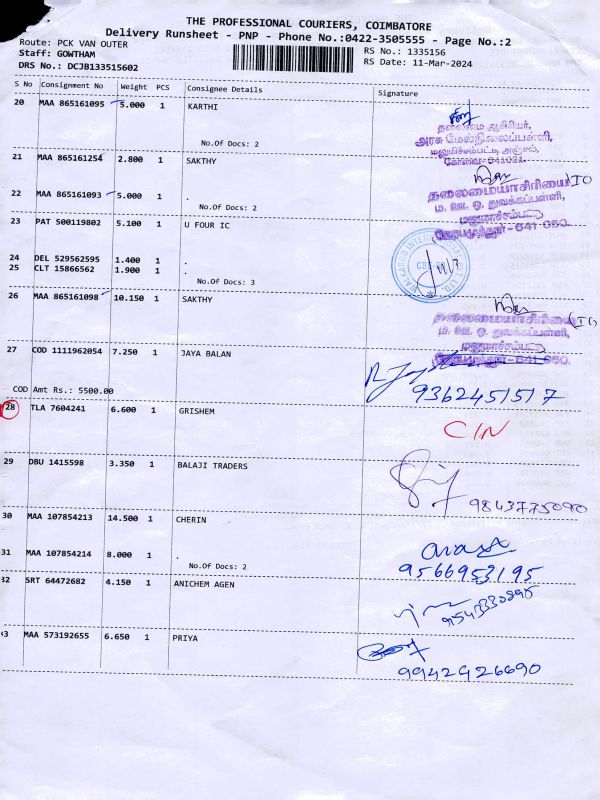 THE PROFESSIONAL COURIERS, COIMBATORE
Delivery Runsheet - PNP - Phone No.:0422-3505555 - Page No.:2
Route: PCK VAN OUTER
Staff: GOWTHAM
DRS No.: DCJB133515602
RS No.: 1335156
RS Date: 11-Mar-2024
S No Consignment No Weight PCS Consignee Details Signature
20 MAA 865161095 5.000 1 KARTHI
No.Of Docs: 2
தலைமை ஆசிரியர்,
அரசு மேல்நிலைப்பள்ளி,
21 MAA 865161254 2.800 1 SAKTHY
22 MAA 865161093 5.000 1 .
No.Of Docs: 2
தலைமையாசிரியை
23 PAT 500119802 5.100 1 U FOUR IC
24 DEL 529562595 1.400 1 .
25 CLT 15866562 1.900 1 .
No.Of Docs: 3
26 MAA 865161098 10.150 1 SAKTHY
தலைமையாசிரியை
27 COD 1111962054 7.250 1 JAYA BALAN
COD Amt Rs.: 5500.00
9362451517
28 TLA 7604241 6.600 1 GRISHEM
C/N
29 DBU 1415598 3.350 1 BALAJI TRADERS
9843775090
30 MAA 107854213 14.500 1 CHERIN
31 MAA 107854214 8.000 1 .
No.Of Docs: 2
9566953195
32 SRT 64472682 4.150 1 ANICHEM AGEN
9543330895
33 MAA 573192655 6.650 1 PRIYA
9942926690